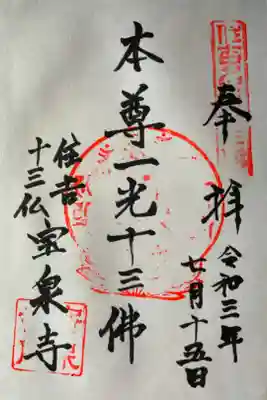 奉拝
令和三年
七月十五日
本尊一光十三佛
住吉
十三仏
宝泉寺